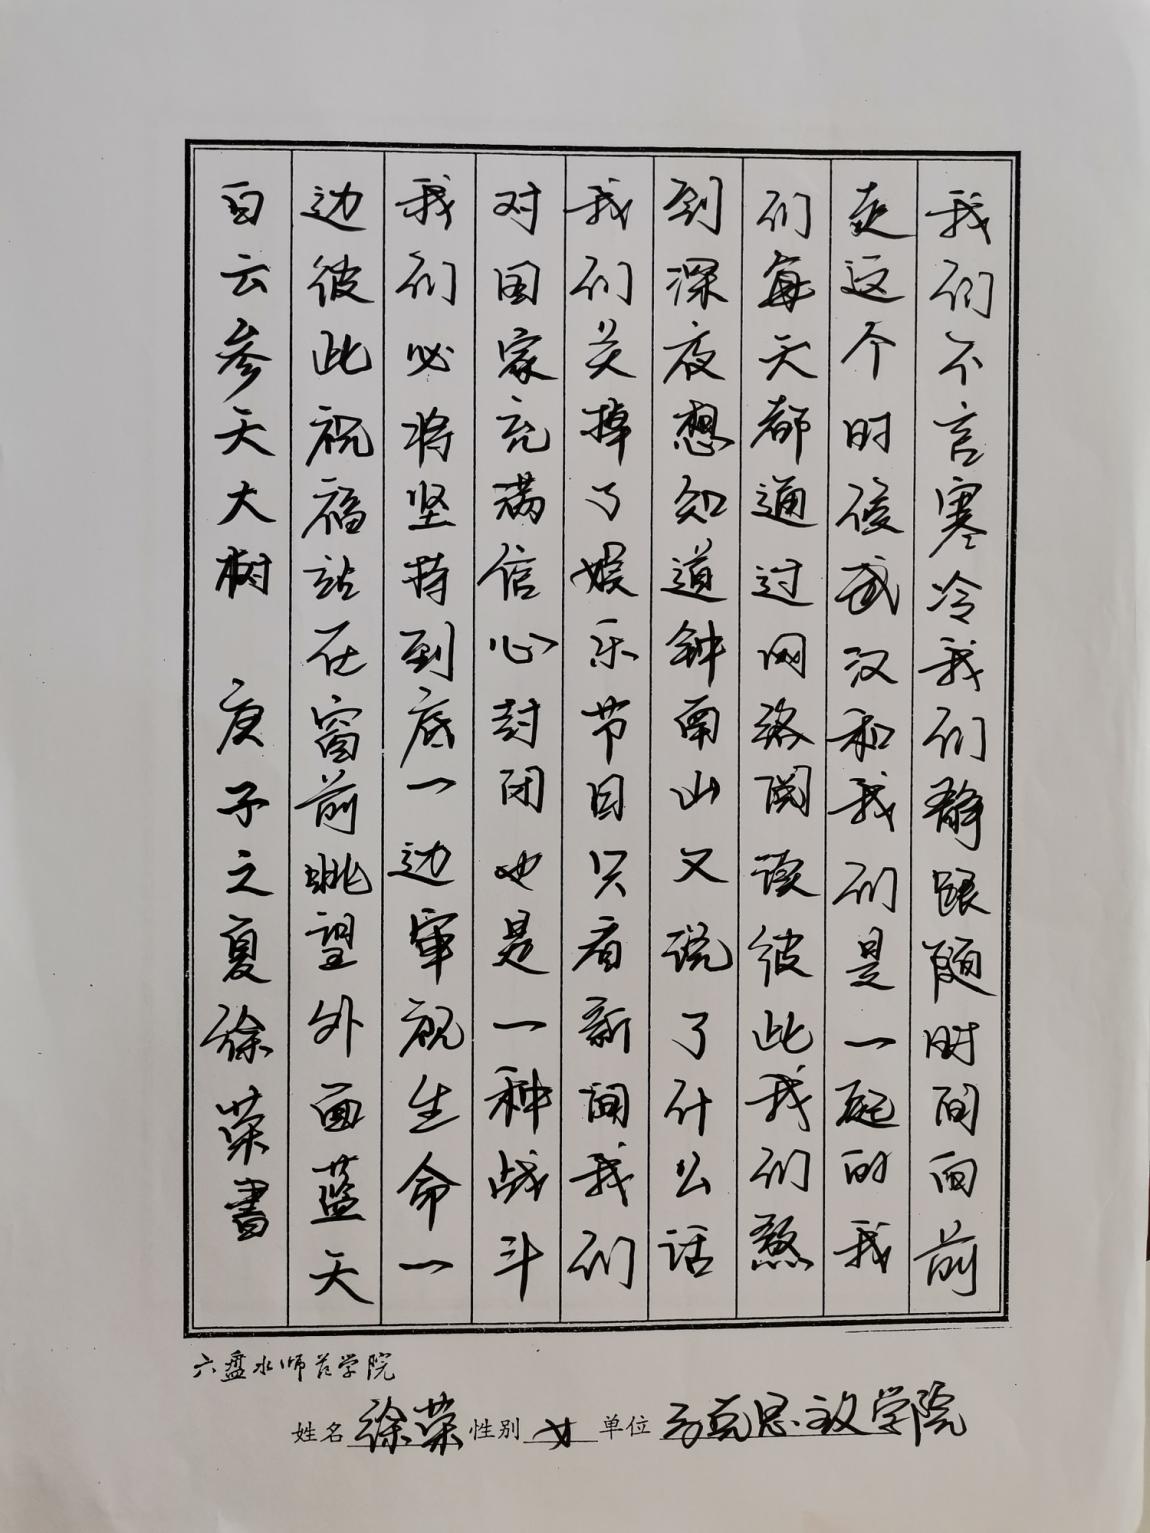 我们不言寒冷我们静跟随时间向前
走这个时候武汉和我们是一起的我
们每天都通过网络阅读彼此我们熬
到深夜想知道钟南山又说了什么话
我们关掉了娱乐节目只看新闻我们
对国家充满信心封闭也是一种战斗
我们必将坚持到底一边审视生命一
边彼此祝福站在窗前眺望外面蓝天
白云参天大树 庚子之夏徐荣書
六盘水师范学院
姓名 徐荣 性别 女 单位 马克思主义学院